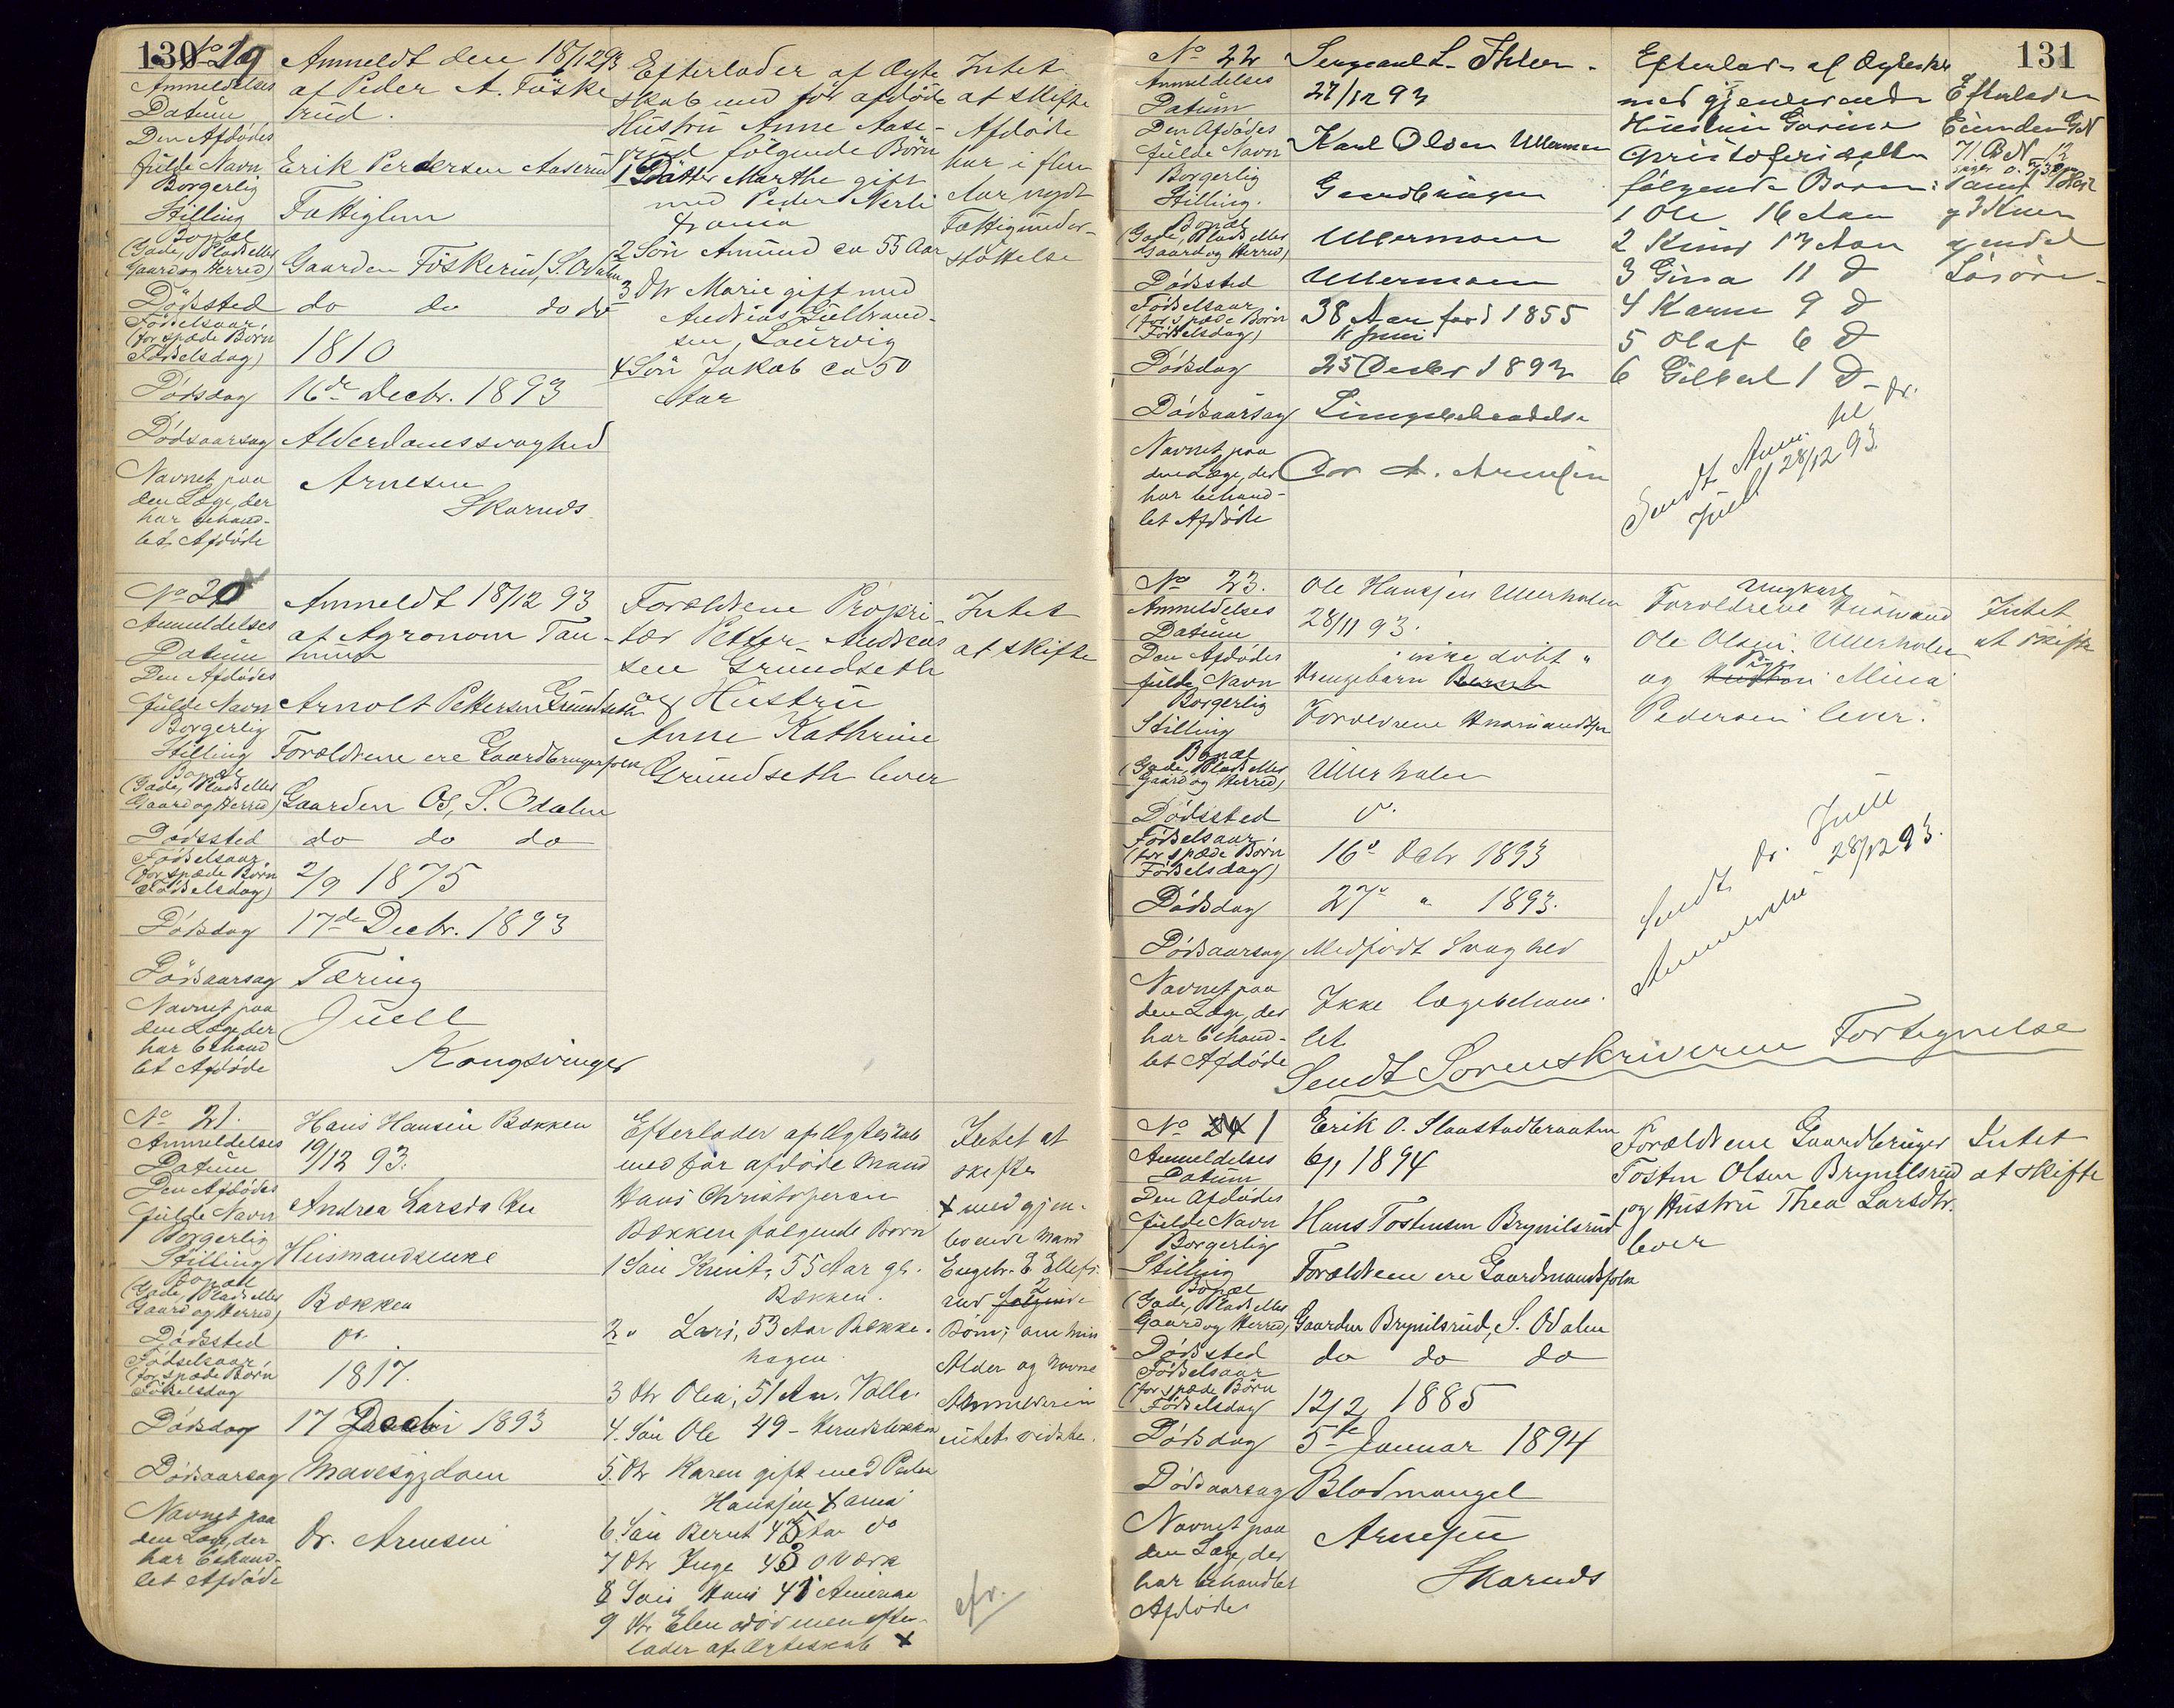 130
No 19 Anmeldt den 18/12 93
Anmeldelses af Peder A. Föske
Datum rud.
Den Afdödes
fulde Navn Erik Pedersen Aaserud
Borgerlig
Stilling Fattiglem
Bopæl
(Gade, Plads eller
Gaard og Herred) Gaarden Föskerud, S. Odalen
Dödssted do do do
Födselsaar,
(for spæde Börn
Födselsdag) 1810
Dödsdag 16de Decbr. 1893
Dödsaarsag Alderdomssvaghed
Navnet paa
den Læge, der Arnesen
har behand- Skarnes
let Afdöde
Efterlader af Ægte
skab med för afdöde
Hustru Anne Aase-
rud fölgende Börn
1 Datter Marthe gift
med Peder Nerli
Xania
2 Sön Amund ca 55 Aar
3 Dtr Marie gift med
Andreas Gulbrand-
sen, Laurvig
4 Sön Jakob ca 50
Aar
Intet
at skifte
Afdöde
har i flere
Aar nydt
Fattigunder-
støttelse
No 20
Anmeldelses Anmeldt 18/12 93
Datum af Agronom Tau-
Den Afdödes
fulde Navn Arnolt Pettersen Grundseth
Borgerlig
Stilling Forældrene ere Gaardbrugerfolk
Bopæl
(Gade, Plads eller
Gaard og Herred) Gaarden Os, S. Odalen
Dödssted do do do
Födselsaar,
(for spæde Börn
Födselsdag) 2/9 1875
Dödsdag 17de Decbr. 1893
Dödsaarsag Tæring
Navnet paa
den Læge, der Juell
har behand Kongsvinger
let Afdöde
Forældrene Propri-
tær Petter Andreas
sen Grundseth
og Hustru
Anne Kathrine
Grundseth lever
Intet
at skifte
No 21. Hans Hansen Bækken
Anmeldelses
Datum 19/12 93.
Den Afdödes
fulde Navn Andrea Larsda tter
Borgerlig
Stilling Husmandsenke
Bopæl
(Gade, Plads eller
Gaard og Herred) Bækken
Dödssted do.
Födselsaar,
(for spæde Börn
Födselsdag 1817.
Dödsdag 17 Decbr 1893
Dödsaarsag Mavesygdom
Navnet paa
den Læge, der Dr. Arnesen
har behand-
let Afdöde
Efterlader af Ægteskab
med för afdöde Mand
Hans Christophersen
Bækken fölgende Börn
1 Sön Knut, 55 Aar gl.
Bækken.
2 " Lars, 53 Aar Bække-
hagen
3 Dtr Olea, 51 Aar. Valle.
4. Sön Ole 49 -
5. Dtr Karen gift med Peder
Hansen Xania
6. Sön Bernt 45 Aar do
7 Dtr Inge 43 Odværk
8 Sön Hans 41 Amerika
9 Dtr Elen död men efter-
lader af Ægteskab X
Intet at
skifte
X med gjen-
levende Mand
Engebr. E Ellefs-
rud 2 fölgende
Börn; om hvis
Alder og Navne
Anmelderen
intet vidste.
cfr.
131
No 22 Sergeant L. Ihlen.
Anmeldelses
Datum 27/12 93
Den Afdödes
fulde Navn Karl Olsen Ullermoen
Borgerlig
Stilling. Gaardbruger
Bopæl
(Gade, Plads eller
Gaard og Herred) Ullermoen
Dödssted Ullermoen
Födselsaar,
(for spæde Börn 38 Aar född 1855
Födselsdag) 11 Juni
Dödsdag 25 Decbr 1893
Dödsaarsag Lungebetændelse
Navnet paa
den Læge, der Dr A. Arnesen
har behand-
let Afdöde
Efterlader af Ægteskab
med gjenlevende
Hustru Gorine
Christofersdatter
fölgende Börn:
1 Ole 16 Aar
2 Knut 13 Aar
3 Gina 11 D
4 Karen 9 D
5 Olaf 6 D
6 Gilbert 1 D
Efterlader
Eiendom GN
71 BN 12
samt 1 Hest
og 3 Kuer
og endel
Lösöre.
Sendt Anm. til Dr.
Juell 28/12 93.
No 23. Ole Hansen Ullerholen
Anmeldelses
Datum 28/11 93.
Den Afdödes " ikke döbt "
fulde Navn Drengebarn Bernt
Borgerlig
Stilling Forældrene Husmandsfolk
Bopæl
(Gade, Plads eller
Gaard og Herred) Ullerholen
Dödssted do.
Födselsaar,
(for spæde Börn 16de Debr 1893
Födselsdag)
Dödsdag 27de " 1893.
Dödsaarsag Medfödt Svaghed
Navnet paa
den Læge, der Ikke lægebehand-
har behand- let
let Afdöde
Ungkarl
Forældrene Husmand
Ole Olsen Ullerholen
og Hustru Pige Mina
Pedersen lever.
Intet
at skifte
Sendt Dr. Juell
Anmeldelse 28/12 93.
Sendt Sorenskriveren Fortegnelse
No 24 1 Erik O. Slaastadbraaten
Anmeldelses
Datum 6/1 1894
Den Afdödes
fulde Navn Hans Tostensen Brynilsrud
Borgerlig
Stilling Forældrene ere Gaardmandsfolk
Bopæl
(Gade, Plads eller
Gaard og Herred) Gaarden Brynilsrud, S. Odalen
Dödssted do do do
Födselsaar
(for spæde Börn
Födselsdag 12/2 1885
Dödsdag 5te Januar 1894
Dödsaarsag Blodmangel
Navnet paa
den Læge, der Arnesen
har behandlet Skarnes
Afdöde
Forældrene Gaardbruger
Tosten Olsen Brynilsrud
og Hustru Thea Larsdtr.
lever
Intet
at skifte